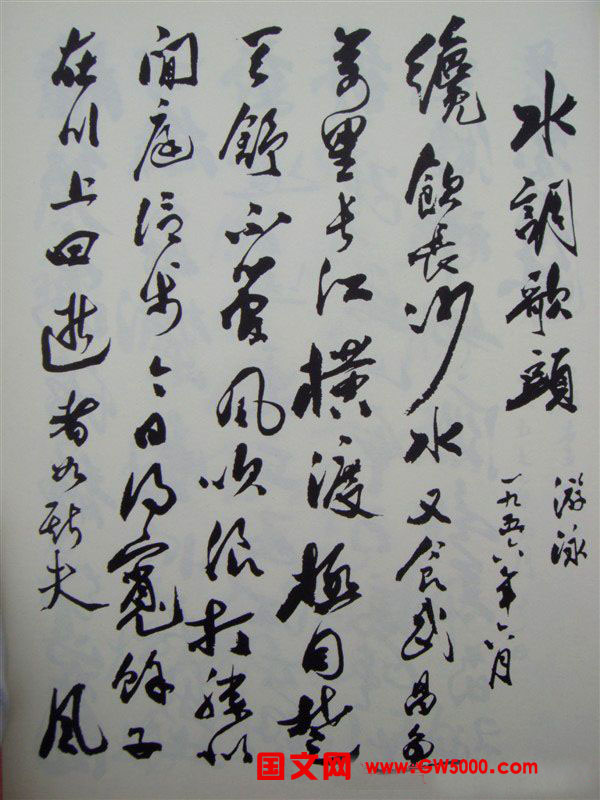 水調歌頭
游泳
一九五六年六月
纔飲長沙水又食武昌魚
萬里長江橫渡極目楚
天舒不管風吹浪打勝似
閒庭信步今日得寬餘子
在川上曰逝者如斯夫 風
国文网 www.GW5000.com